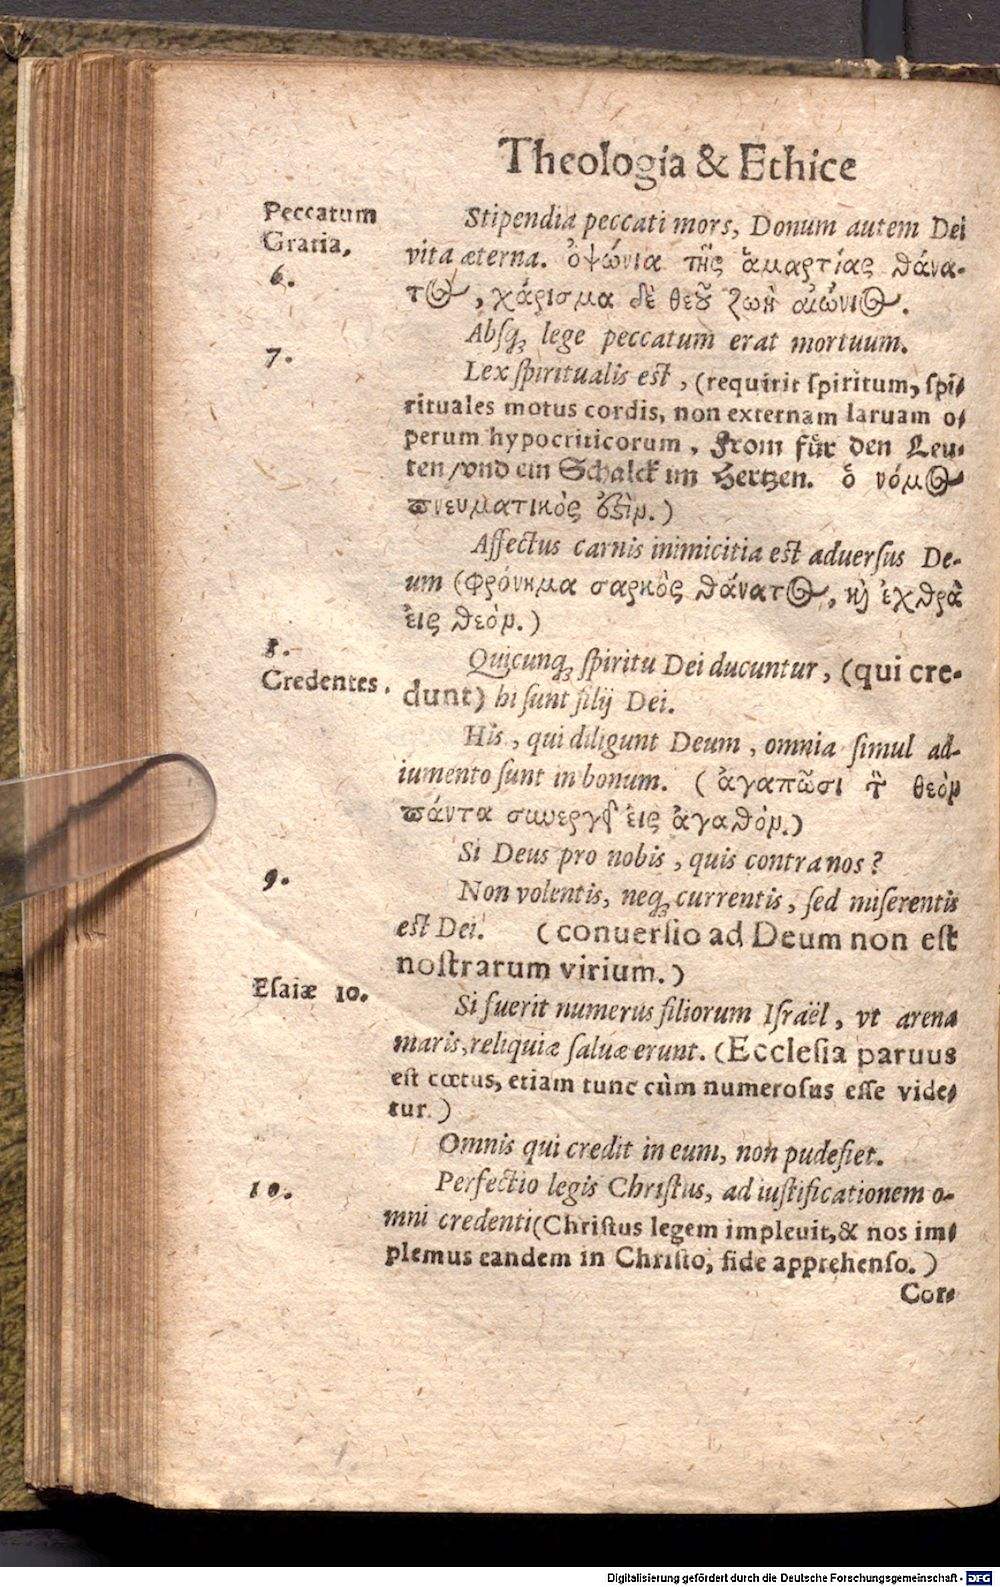 Theologia & Ethice
Peccatum
Gratia.
6.
Stipendia peccati mors, Donum autem Dei
vita æterna. ὀψώνια τῆς ἁμαρτίας θάνα-
τος, χάρισμα δὲ θεοῦ ζωὴ αἰώνιος.
Absq; lege peccatum erat mortuum.
7.
Lex spiritualis est, (requirit spiritum, spi-
rituales motus cordis, non externam laruam o-
perum hypocriticorum, From für den Leu-
ten/vnd ein Schalck im Hertzen. ὁ νόμος
πνευματικὸς ὅςὶν.)
Affectus carnis inimicitia est aduersus De-
um (Φρόνημα σαρκὸς θάνατος, κὴ ἐχθρὰ
ἐις θεόν.)
8.
Credentes.
Quicunq; spiritu Dei ducuntur, (qui cre-
dunt) hi sunt filij Dei.
His, qui diligunt Deum, omnia simul ad-
iumento sunt in bonum. (ἀγαπῶσι τὸν θεὸν
πάντα συνεργεῖ ἐις ἀγαθὸν.)
Si Deus pro nobis, quis contra nos?
9.
Non volentis, neq; currentis, sed miserentis
est Dei. (conuersio ad Deum non est
nostrarum virium.)
Esaiæ 10.
Si fuerit numerus filiorum Israël, vt arena
maris, reliquiæ saluæ erunt. (Ecclesia paruus
est cœtus, etiam tunc cùm numerosus esse vide-
tur.)
Omnis qui credit in eum, non pudefiet.
10.
Perfectio legis Christus, ad iustificationem o-
mni credenti (Christus legem impleuit, & nos im-
plemus eandem in Christo, fide apprehenso.)
Cor-
Digitalisierung gefördert durch die Deutsche Forschungsgemeinschaft - DFG